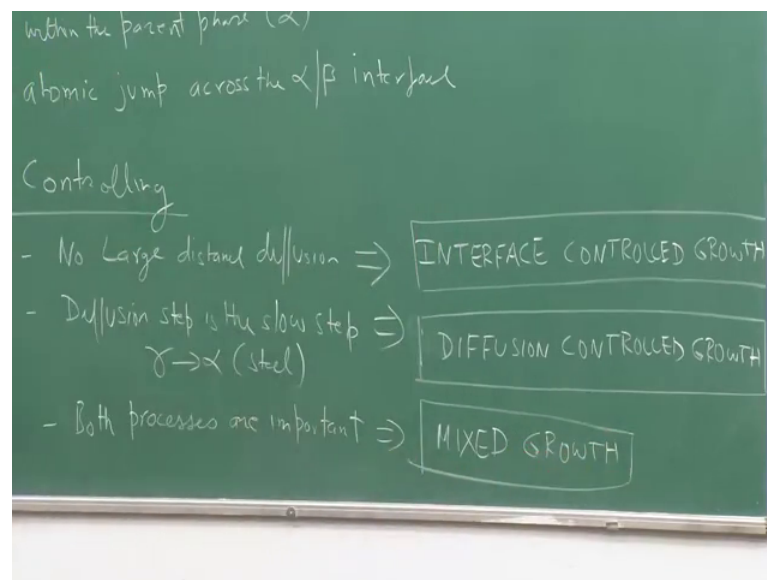 within the parent phase (α)
atomic jump across the α/β interface
Controlling
- No Large distance diffusion ⇒ INTERFACE CONTROLLED GROWTH
- Diffusion step is the slow step ⇒ DIFFUSION CONTROLLED GROWTH
γ→α (steel)
- Both processes are important ⇒ MIXED GROWTH